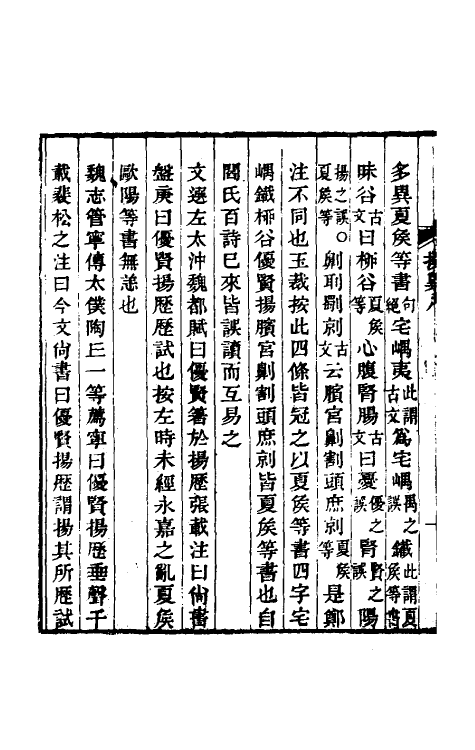 多異夏矦等書句絕宅嵎夷此謂古文爲宅嵎禺之誤鐵此謂夏矦等書
昧谷古文曰桺谷夏矦等心腹腎腸古文曰憂優之誤腎賢之誤陽
揚之誤夏矦等○劓刵劅剠古文云臏宮劓割頭庶剠夏矦等是鄭
注不同也玉裁按此四條皆冠之以夏矦等書四字宅
嵎鐵桺谷優賢揚臏宮劓割頭庶剠皆夏矦等書也自
閻氏百詩已來皆誤讀而互易之
文選左太沖魏都賦曰優賢箸於揚歷張載注曰尙書
盤庚曰優賢揚歷歷試也按左時未經永嘉之亂夏矦
歐陽等書無恙也
魏志管寧傳太僕陶丘一等薦寧曰優賢揚歷垂聲千
載裴松之注曰今文尙書曰優賢揚歷謂揚其所歷試